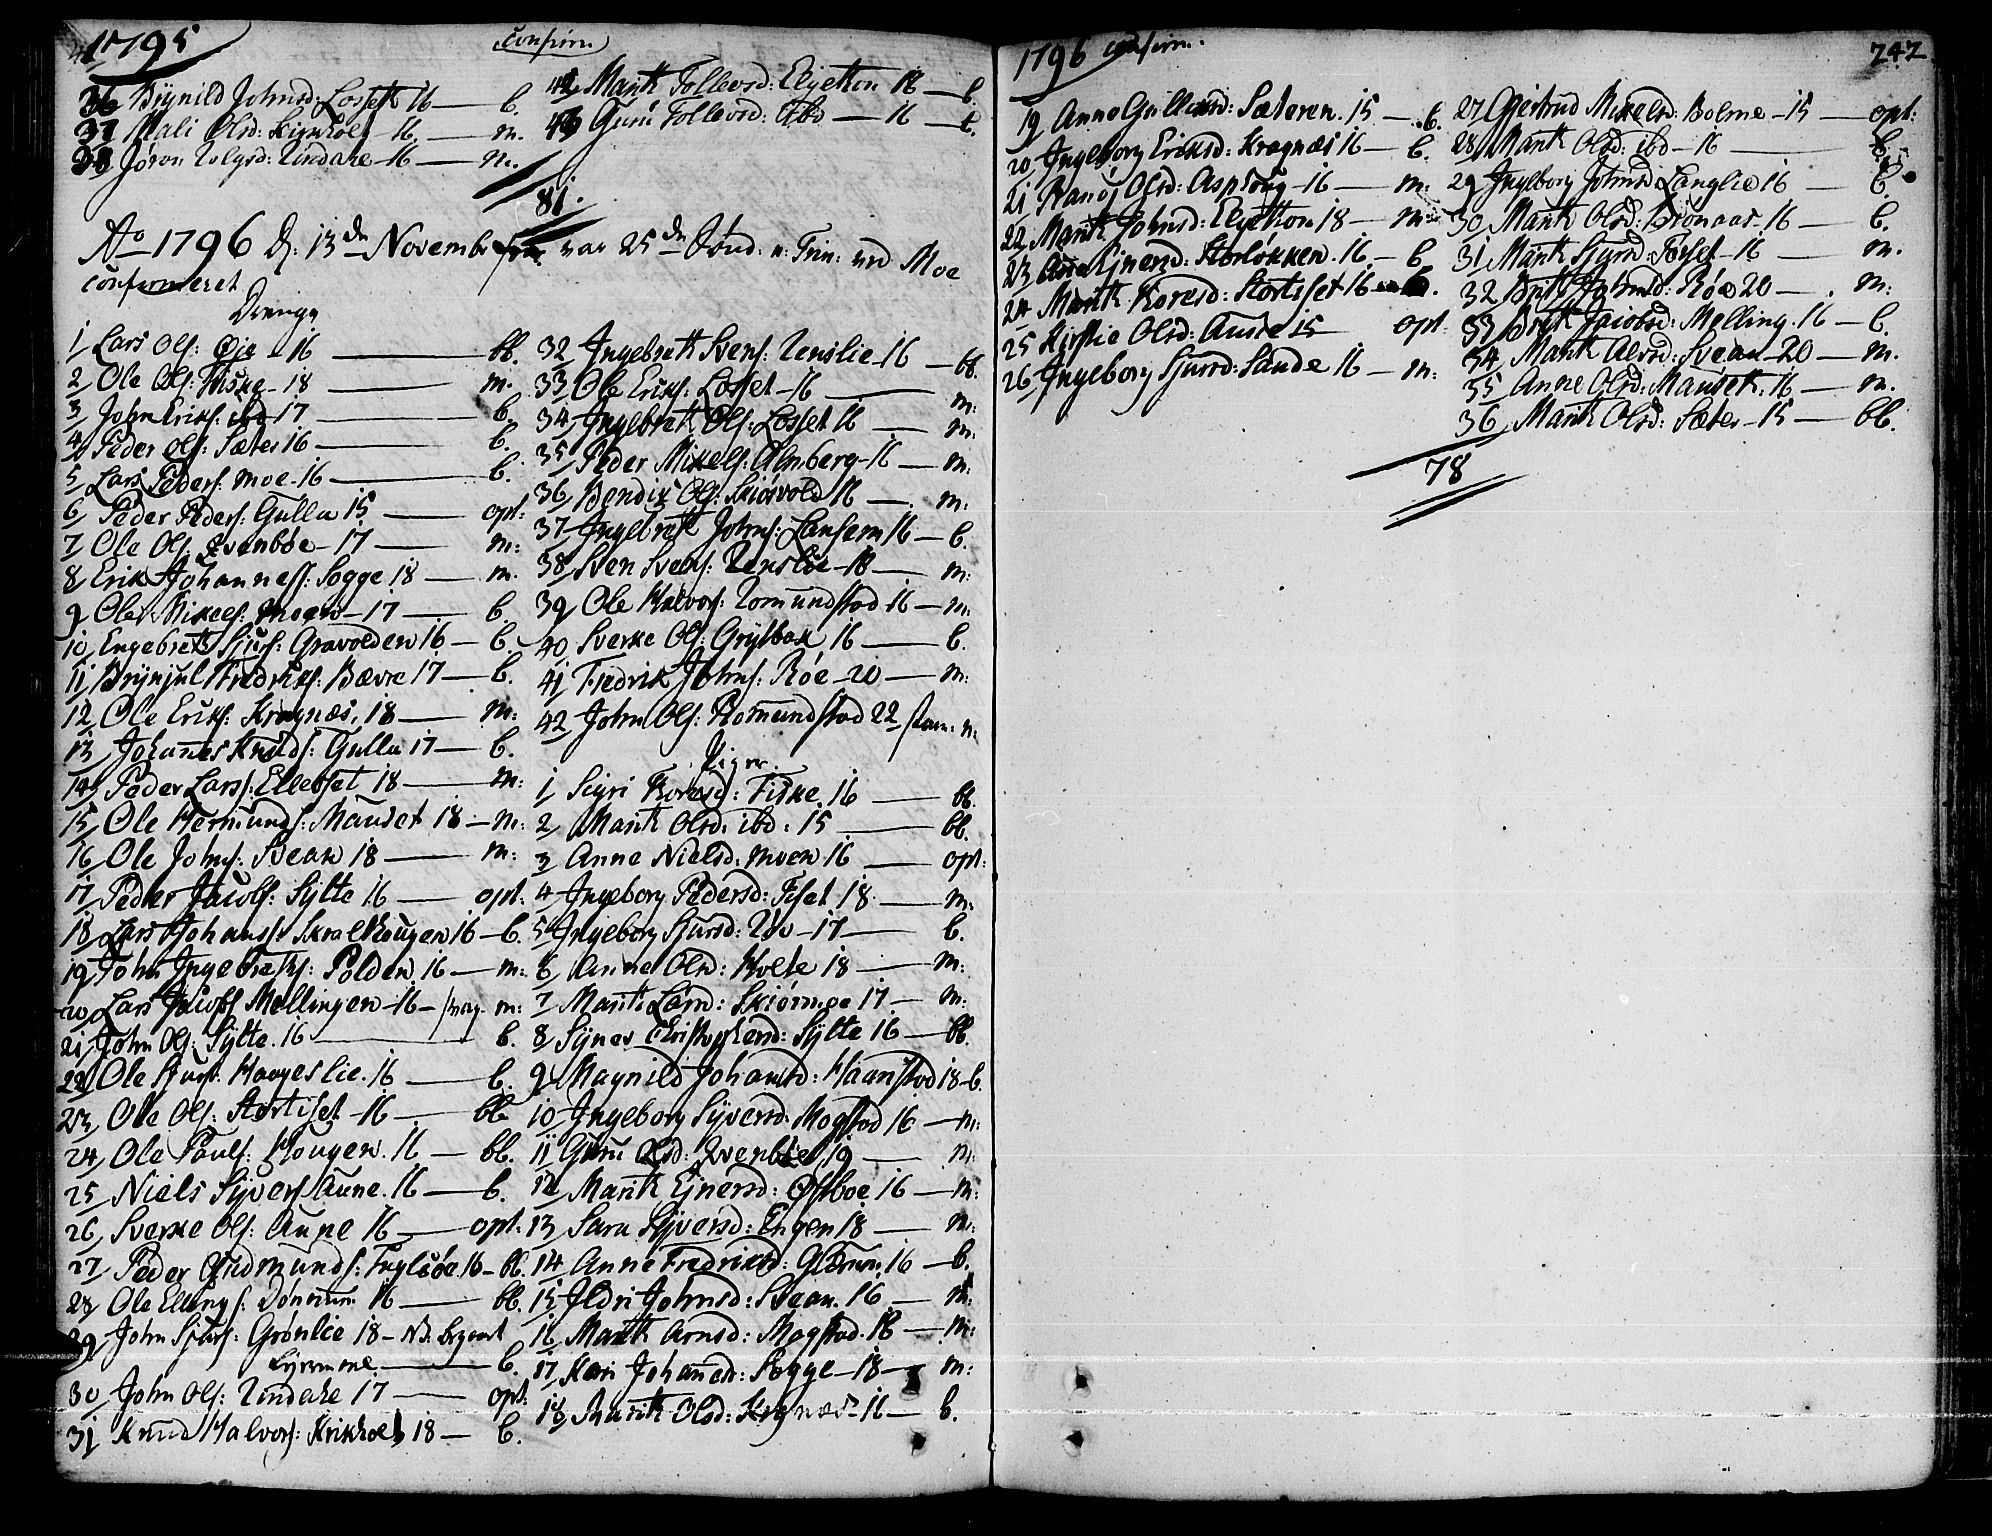 1795
confirm.
36 Brynild Johnsd: Losset 16 — b.
37 Mali Olsd: 16 — m.
38 Jøron Rindahe - 16 — m.
42 Marit Tollevsd: Elgetton 18 — b.
43 Guru Tollevsd: Ibd — 16 — b.
81.
Ao 1796 d: 13de November som var 25de Sønd: n: Trin: ved Moe
confirmeret
Drenge
1 Lars Ols: Øie - 16 — bb.
2 Ole Ols: Fiske - 18 — m.
3 John Eriks: ibd 17 — b.
4 Peder Ols: Sæter 16 — b.
5 Lars Peders: Moe - 16 — b.
6 Peder Peders: Gulla 15 — opt:
7 Ole Ols: Qvenbøe - 17 — m:
8 Erik Johanness: Sogge 18 — m.
9 Ole Mikels: Moen - 17 — b
10 Engebret Sjurs: Gravolden 16 — b.
11 Brynjul Fredriks: Bævre 17 — b.
12 Ole Eriks: Kragnæs, 18 — m:
13 Johanes Knuds: Gulla 17 — b.
14 Peder Larss: Ellevset 18 — m:
15 Ole Hermunds: Mauset 18 — m:
16 Ole Johns: Svean 18 — m:
17 Peder Jacobs: Sylte 16 — opt.
18 Lars Johans: Skralthougen 16 — b.
19 John Ingebrets: Polden 16 — m:
20 Lars Jacobs Mellingen - 16 — m:
21 John Ols: Sylte. 16 — b.
22 Ole Sjurs: Haugeslie. 16 — b.
23 Ole Ols: Stortiset - 16 — bb
24 Ole Pauls: Hougen. 16 — bb.
25 Niels Syvers Aune. 16 — b.
26 Sverke Ols: Aune 16 — opt:
27 Peder Gudmunds: Fuglsøe 16 — bb.
28 Ole Ellings: Dønnum 16 — bb.
29 John Sjurs: Grønlie 18 — NB.
— b.
30 John Ols: Rindahe 17 — opt:
31 Knud Halvors: Krikhoel 18 — b.
32 Ingebrett Svens: Renslie - 16 — bb.
33 Ole Eriks: Losset - 16 — m:
34 Ingebrett Ols: Losset 16 — m:
35 Peder Mikels: Almberg - 16 — m:
36 Bendix Ols: Skiørvold 16 — m:
37 Ingebrett Johns: Lansem 16 — b.
38 Sven Svens: Renslie - 18 — m:
39 Ole Halvors: Romundstad 16 — m:
40 Sverke Ols: Grytbak 16 — b.
41 Fredrik Johns: Røe - 20 — m:
42 John Ols: Romundstad 22
Piger
1 Sigri Toresd: Fiske. 16 — bb.
2 Marit Olsd: ibd: 15 — bb.
3 Anne Nielsd: Moen 16 — opt:
4 Ingeborg Pedersd: Fiset 18. — m.
5 Ingeborg Sjursd: - 17 — b.
6 Anne Olsd: Holte 18 — m:
7 Marit Larsd: Skiørmoe 17. — m:
8 Synev Christophersd: Sylte 16 — bb.
9 Magnild Johansd: Haanstad 18 - b.
10 Ingeborg Syversd: Mogstad 16 — m:
11 Guru Olsd: Qvenbøe. 19 — m:
12 Marit Ejnersd: Østboe 16 — m:
13 Sara Syversd: Engen 18 — m:
14 Anne Fredriksd: Glærum 16 — b.
15 Ildri Johnsd: Svean. 16 — m:
16 Marit Arnsd: Mogstad. 18 — m:
17 Kari Johansd: Sogge - 18 — m:
18 Marit Olsd: Kragnæs - 16 — b.
1796 confirm.
747
19 Anne Gulliksd: Sæteren. 15 — b.
20 Ingeborg Eriksd: Kragnæs 16 — b.
21 Randj Olsd: Aspsoug - 16 — m:
22 Marit Johnsd: Elgetton 18 — m:
23 Ane Ejnersd: Storløkken. 16 — b
24 Marit Toresd: Stortiset 16 — b.
25 Kirstie Olsd: Aune 15 opt:
26 Ingeborg Sjursd: Sande 16 — m:
27 Gjertrud Mikelsd: Bolme - 15 — opt:
28 Marit Olsd: ibd - 16 — b.
29 Ingeborg Johnsd Langlie 16 — b
30 Marit Olsd: Brønaas - 16 — b.
31 Marit Sjursd: Fosset - 16 — m.
32 Brit Johnsd: Røe 20 — m:
33 Brit Jacobsd: Melling. 16 — b.
34 Marit Alvsd: Svean - 20 — m.
35 Anne Olsd: Mauset. 16 — m.
36 Marit Olsd: Sæter - 15 — bb.
78